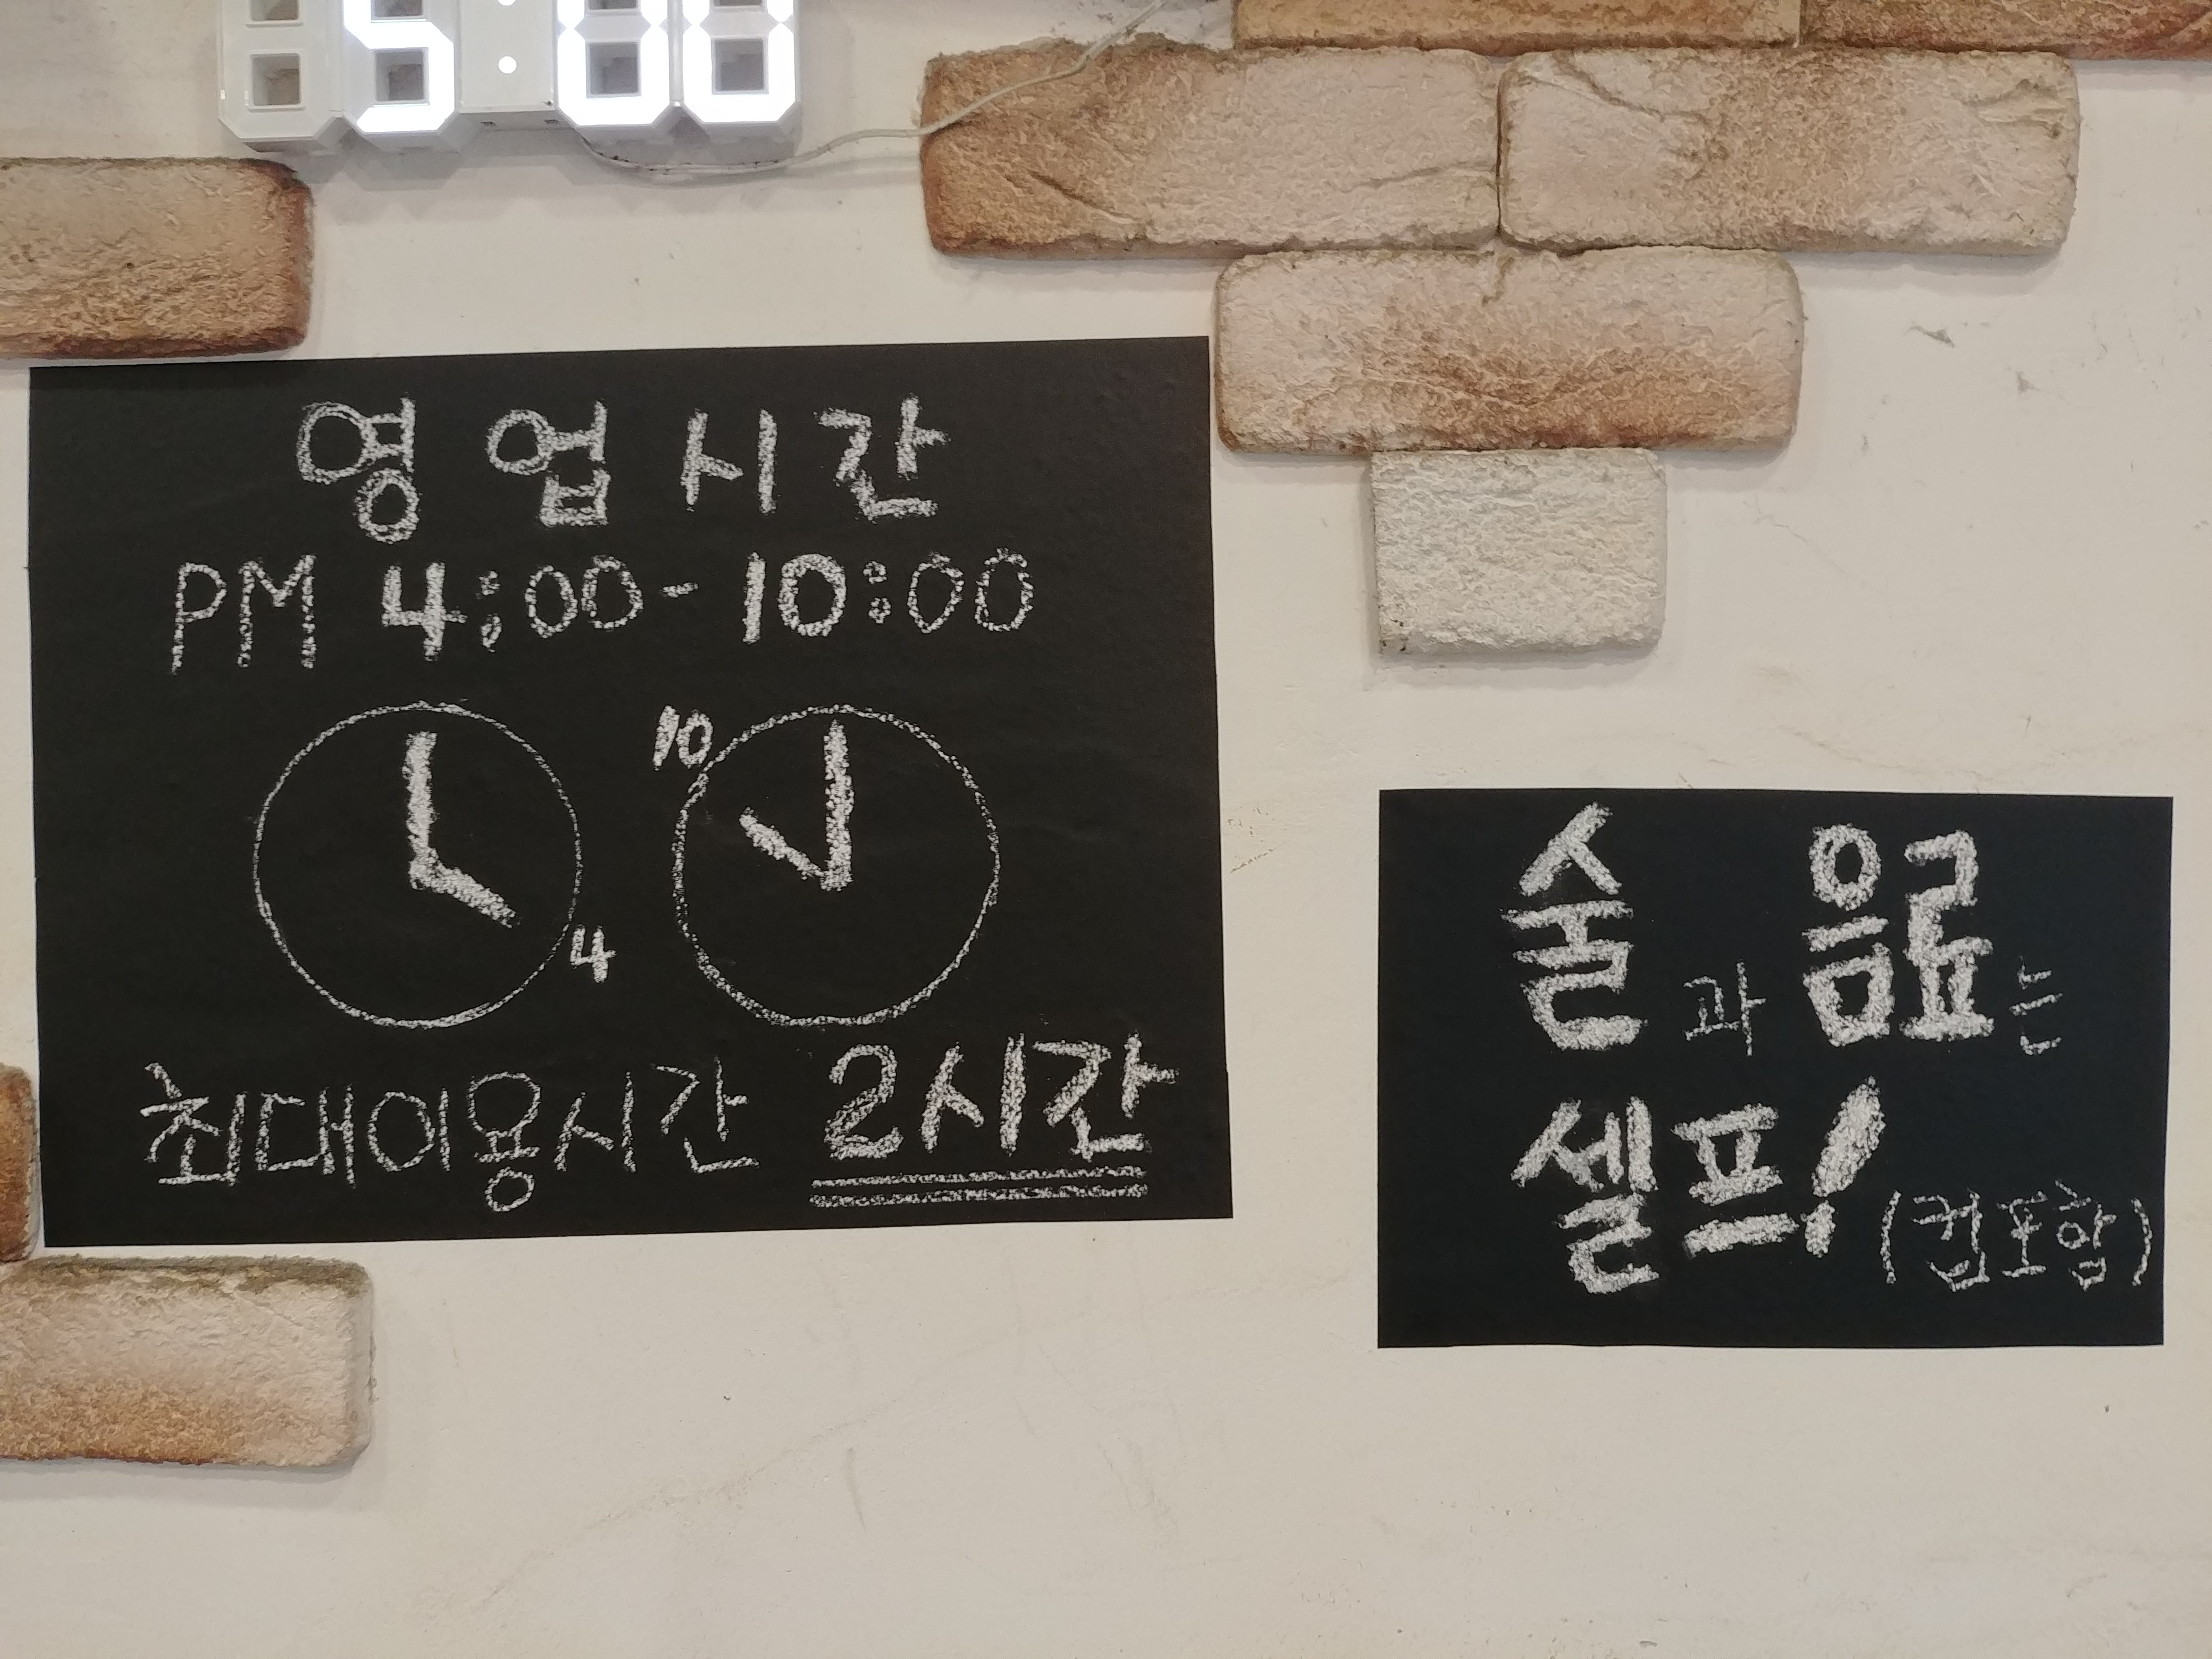 5:00
영업시간
PM 4:00-10:00
10
4
최대이용시간 2시간
술과 음료는
셀프!(컵포함)